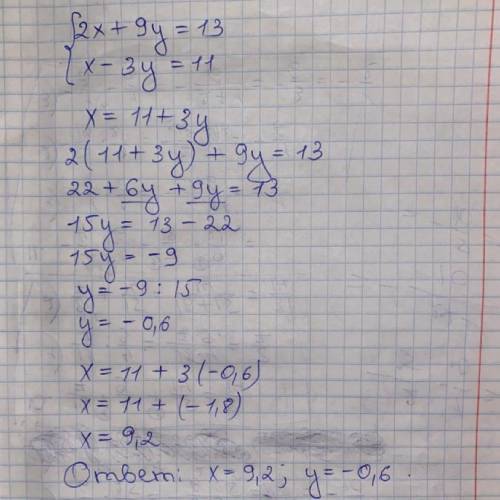 {2x + 9y = 13
x - 3y = 11
x = 11 + 3y
2(11 + 3y) + 9y = 13
22 + 6y + 9y = 13
15y = 13 - 22
15y = -9
y = -9 : 15
y = -0,6
x = 11 + 3(-0,6)
x = 11 + (-1,8)
x = 9,2
Ответ: x = 9,2; y = -0,6.